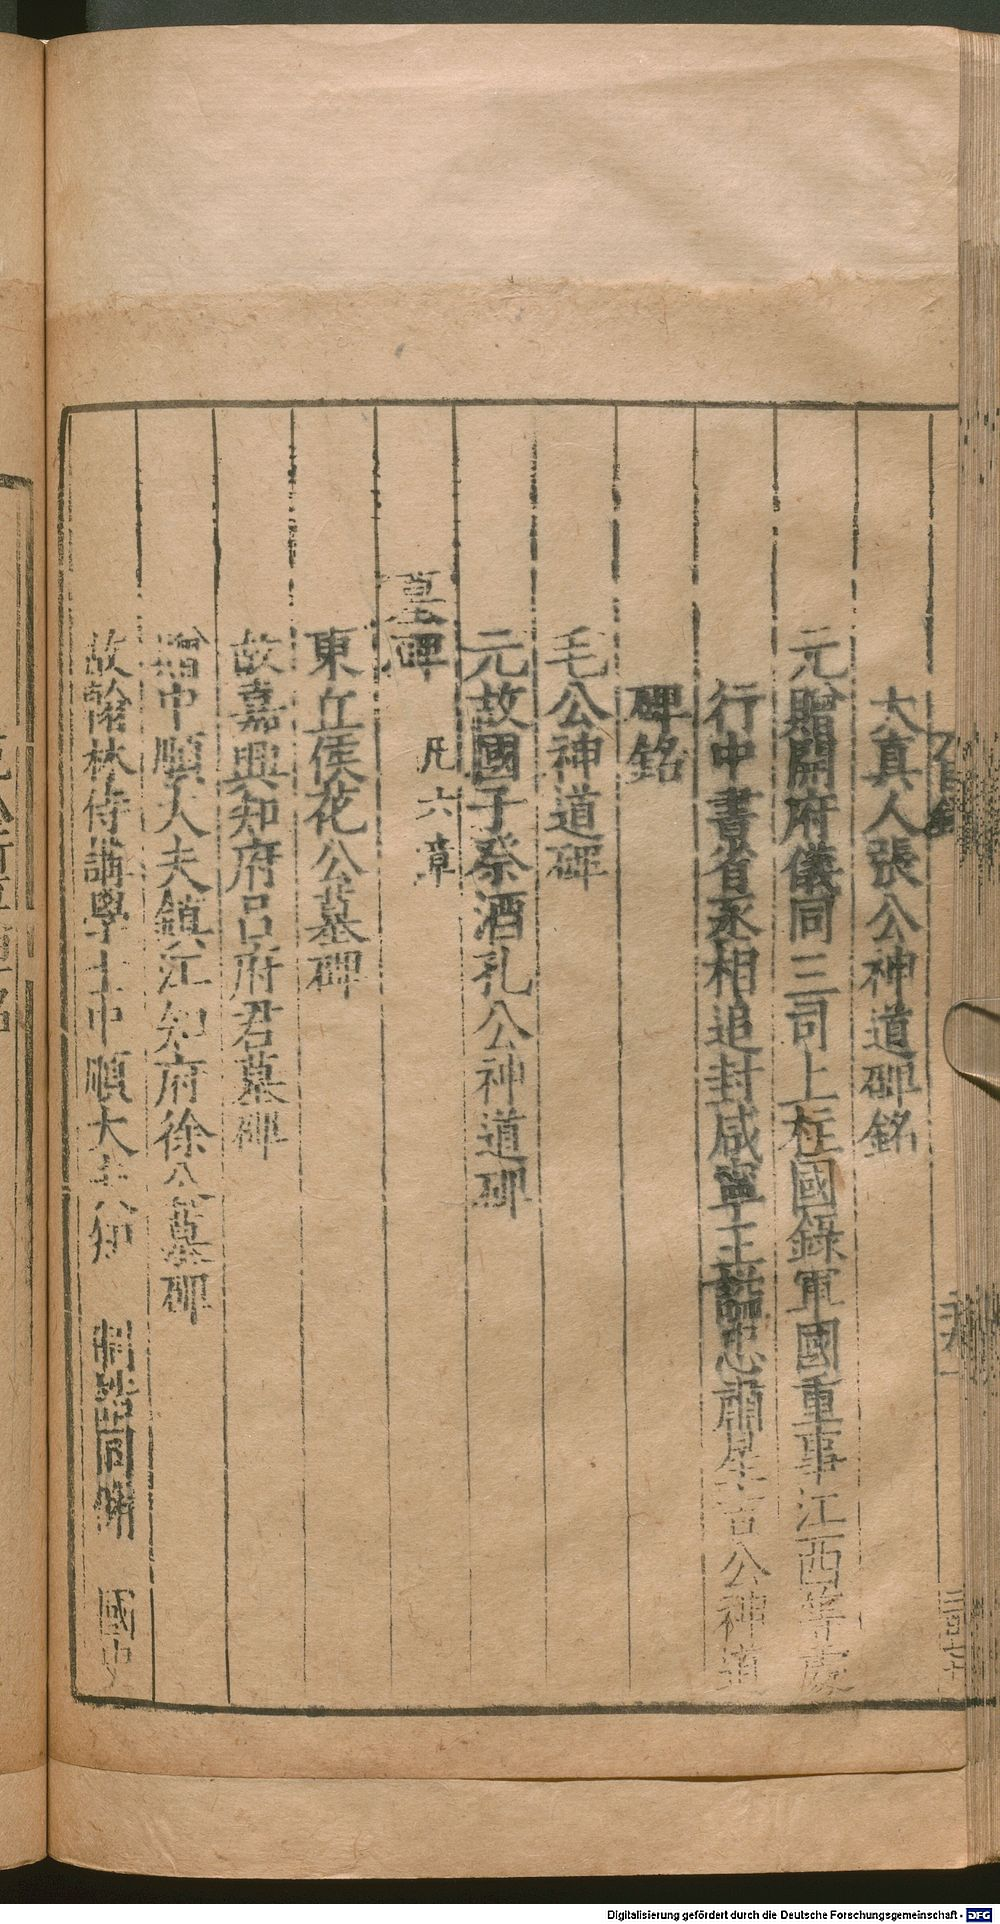 大真人張公神道碑銘
元贈開府儀同三司上柱國錄軍國重事江西等處
行中書省丞相追封咸寧王諡忠肅星吉公神道
碑銘
毛公神道碑
元故國子祭酒孔公神道碑
墓碑 凡六章
東丘侯花公墓碑
故嘉興知府呂府君墓碑
贈中順大夫鎮江知府徐公墓碑
故翰林侍講學士中順大夫 制誥同脩 國史
Digitalisierung gefördert durch die Deutsche Forschungsgemeinschaft - DFG